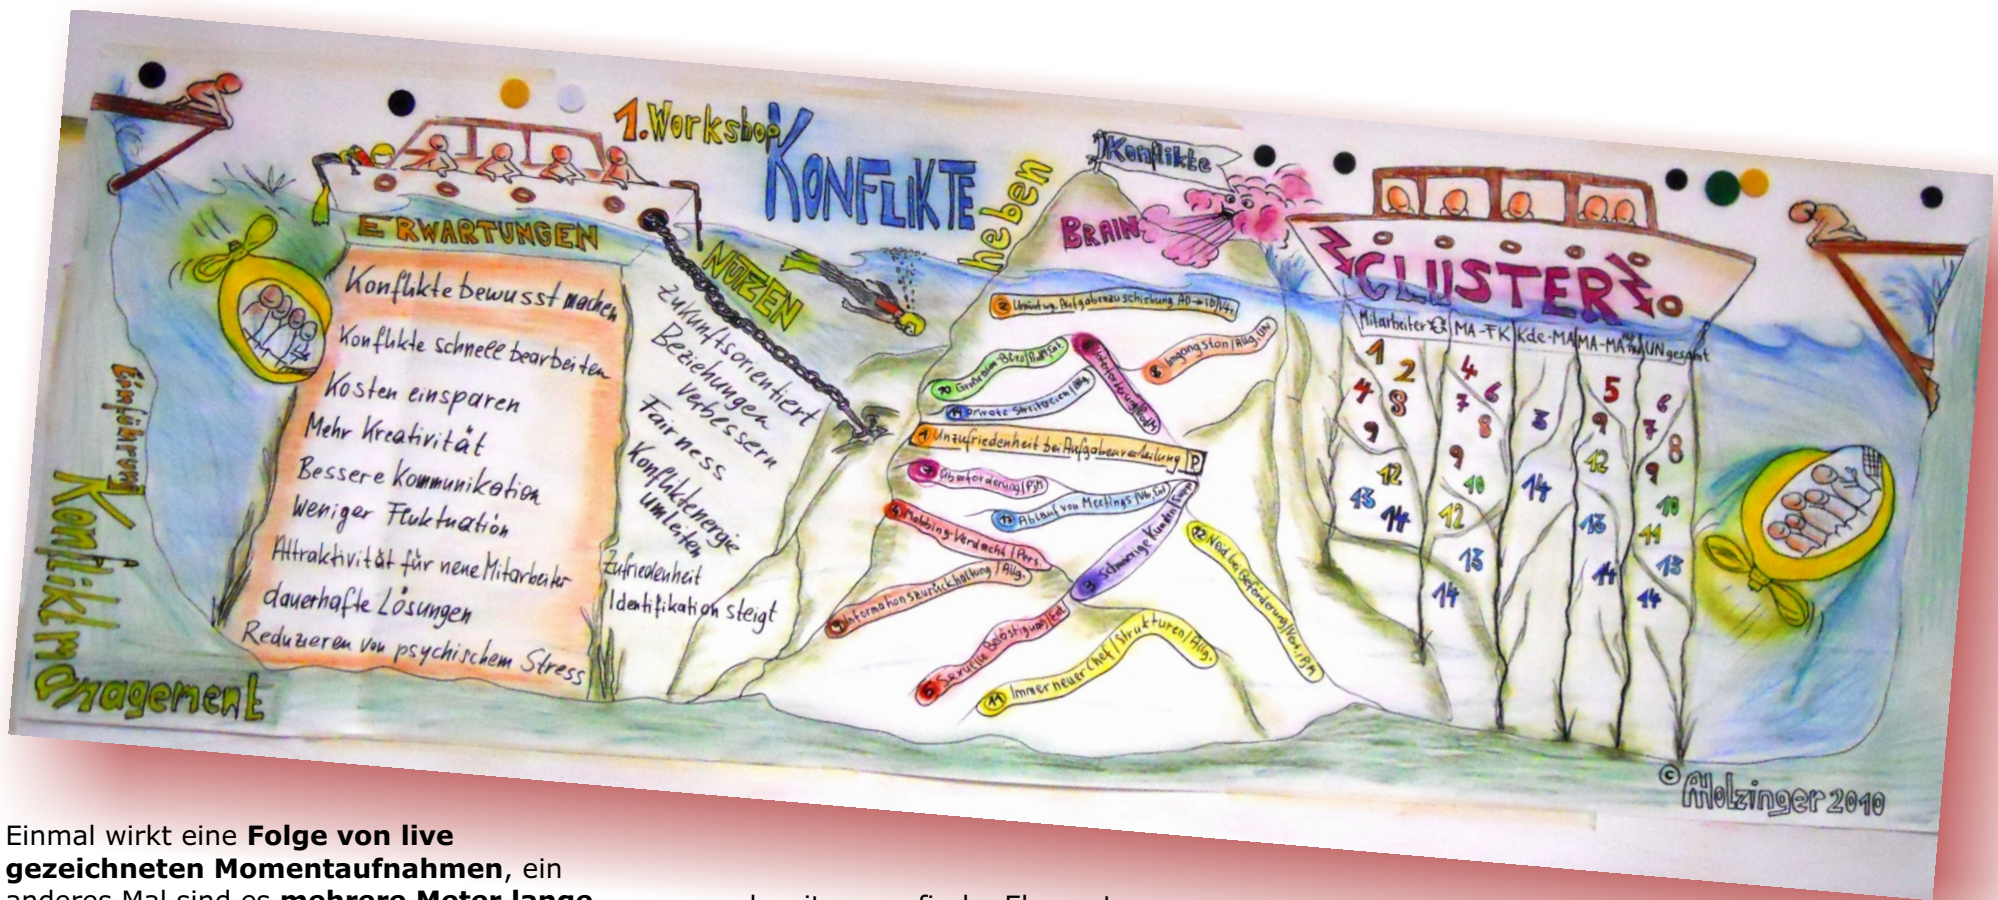 1. Workshop
KONFLIKTE
heben
Einführung
Konfliktmanagement
ERWARTUNGEN
Konflikte bewusst machen
Konflikte schnell bearbeiten
Kosten einsparen
Mehr Kreativität
Bessere Kommunikation
Weniger Fluktuation
Attraktivität für neue Mitarbeiter
dauerhafte Lösungen
Reduzieren von psychischem Stress
NUTZEN
Zukunftsorientiert
Beziehungen
verbessern
Fairness
Konfliktenergie
umleiten
Zufriedenheit
Identifikation steigt
Konflikte
BRAIN
2
10 Großraum-Büro
8 Umgangston / Allg. UN
14 private Streitereien / Allg.
1 Unzufriedenheit bei Aufgabenverteilung P
Überforderung
13 Ablauf von Meetings
Mobbing-Verdacht / Pers.
9 Informationszurückhaltung / Allg.
3 Schwierige Kunden
12 Neid bei Beförderung
Sexuelle Belästigung
11 Immer neuer Chef / Strukturen / Allg.
CLUSTER
Mitarbeiter
MA-FK
Kde-MA
MA-MA
UN gesamt
1 2 4 8 9 12 13 14
4 6 7 8 9 10 12 13 14
3 14
5 9 12 13 14
6 7 8 9 10 11 13 14
© AHolzinger 2010
Einmal wirkt eine Folge von live
gezeichneten Momentaufnahmen, ein
anderes Mal sind es mehrere Meter lange